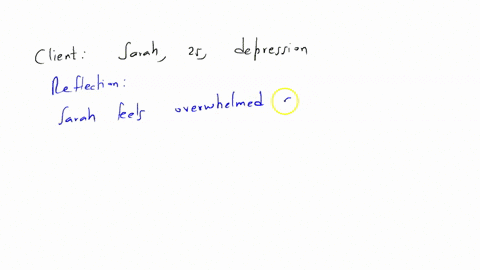 Client: Sarah, 25, depression
Reflection:
Sarah feels overwhelmed